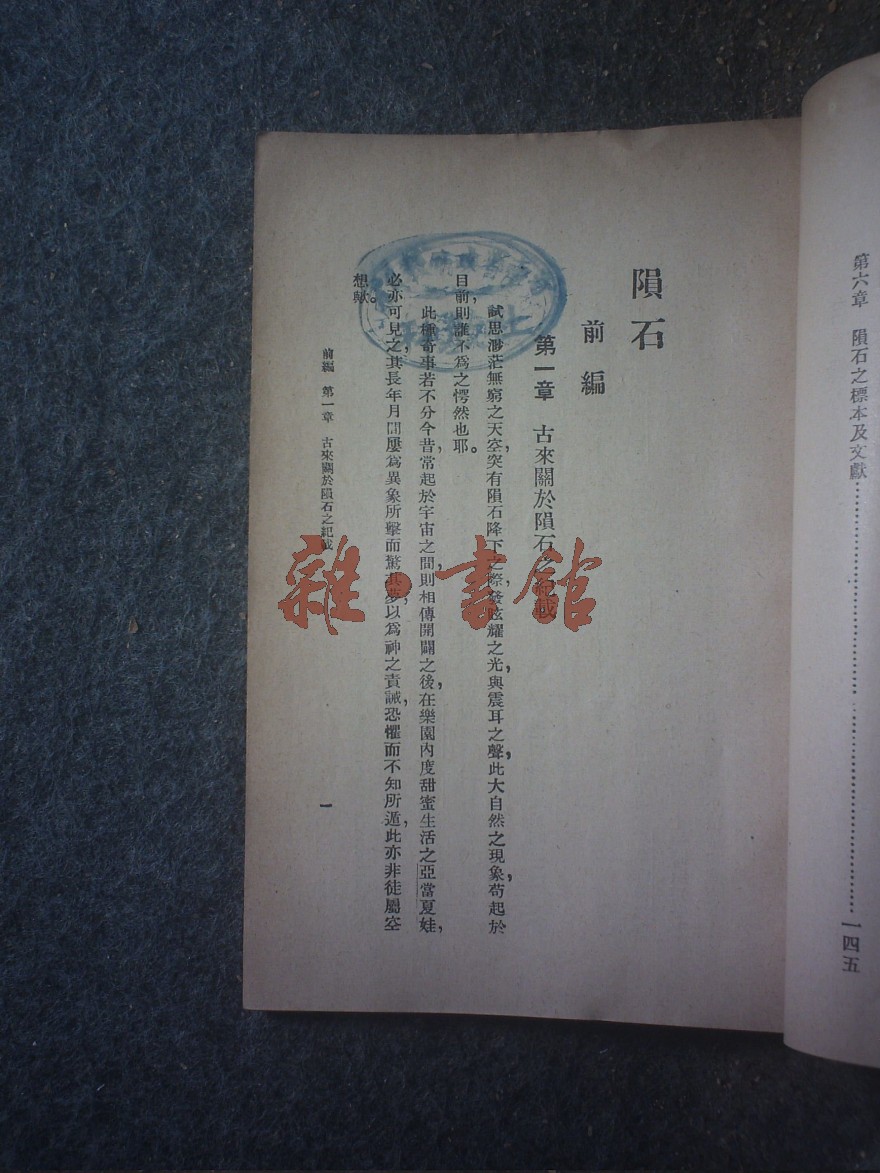 第六章　隕石之標本及文獻……………………一四五
隕石
前編
第一章　古來關於隕石之紀載
試思渺茫無窮之天空，突有隕石降下之際，發眩耀之光，與震耳之聲，此大自然之現象，苟起於
目前，則誰不爲之愕然也耶。
此種奇事若不分今昔，常起於宇宙之間，則相傳開闢之後，在樂園內度甜蜜生活之亞當夏娃，
必亦可見之，其長年月間屢爲異象所擊而驚其夢，以爲神之責誡，恐懼而不知所遁，此亦非徒屬空
想歟。
前編　第一章　古來關於隕石之紀載
一
雜·書館